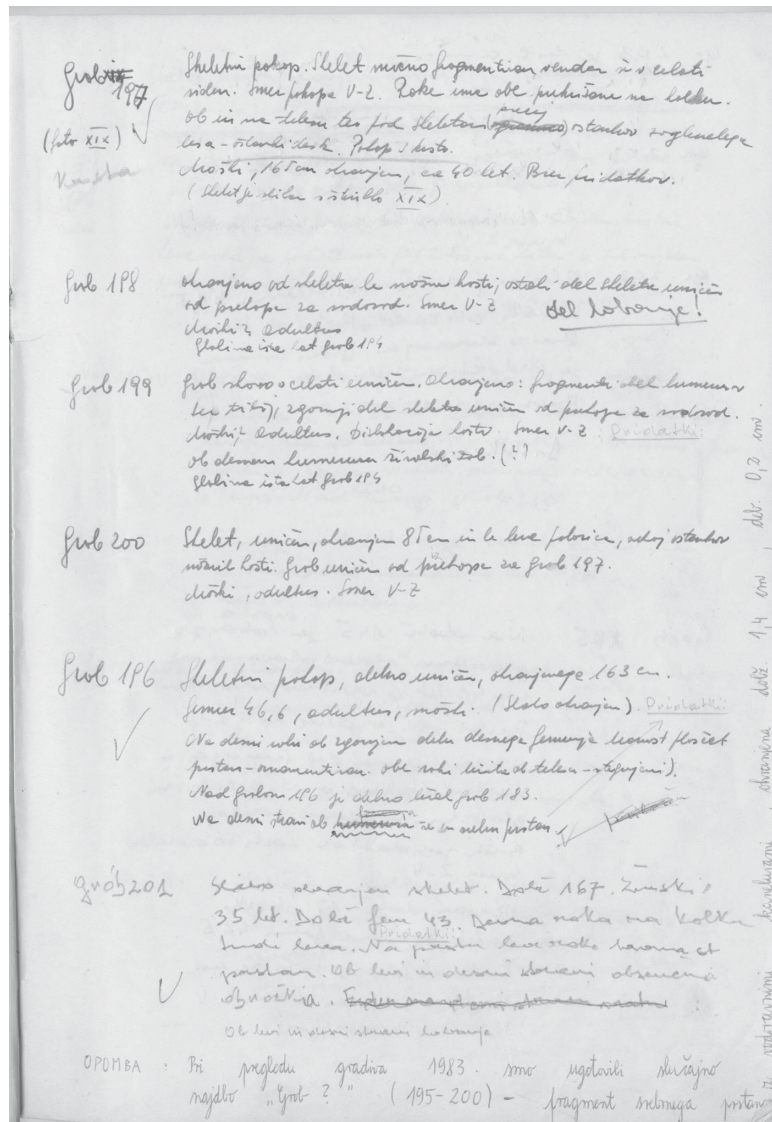 Grob 197
Skeletni pokop. Skelet močno fragmentiran, vendar še v celoti
viden. Smer pokopa V-Z. Roke ima obe prekrižane na kolku.
ob in na telesu ter pod skeletom precej ostankov zoglenelega
lesa - ostanki desk. Pokop s krsto.
(foto XIX)
Moški, 165 cm ohranjen, ca 40 let. Brez pridatkov.
Krsta
(Skelet je slikan s številko XIX).
Grob 198
ohranjeno od skeleta le nožne kosti; ostali del skeleta uničen
od prekopa za vodovod. Smer V-Z
del lobanje!
Moški?, adultus
Globina ista kot grob 194
Grob 199
Grob skoro v celoti uničen. Ohranjeno: fragmenti del humerusa
ter tibij, zgornji del skeleta uničen od prekopa za vodovod.
Moški?, adultus. Dislokacija kosti. Smer V-Z. Pridatki:
ob desnem humerusu živalski zob. (?)
Globina ista kot grob 194
Grob 200
Skelet, uničen, ohranjen 85 cm in le leva polovica, nekaj ostankov
nožnih kosti. Grob uničen od prekopa za grob 197.
Moški, adultus. Smer V-Z
Grob 196
Skeletni pokop, delno uničen, ohranjenega 163 cm.
femur 46,6, adultus, moški. (Slabo ohranjen). Pridatki:
Na desni roki ob zgornjem delu desnega femurja bronast ploščat
prstan - ornamentiran. obe roki iztegnjeni).
Nad grobom 196 je delno ležal grob 183.
Na desni strani ob še en srebrn prstan.
grob 201
Slabo ohranjen skelet. Dolž 167. Ženski
35 let. Dolž fem 43. Desna roka na kolku
Pridatki:
tudi leva. Na prstu leve roke bronast
prstan. Ob levi in desni strani obsenčna
obročka.
Ob levi in desni strani lobanje
OPOMBA: Pri pregledu gradiva 1983. smo ugotovili slučajno
najdbo "Grob ?" (195-200) - fragment srebrnega prstana
z vodoravnimi kanelurami, ohranjena dolž. 1,4 cm, deb. 0,2 cm.